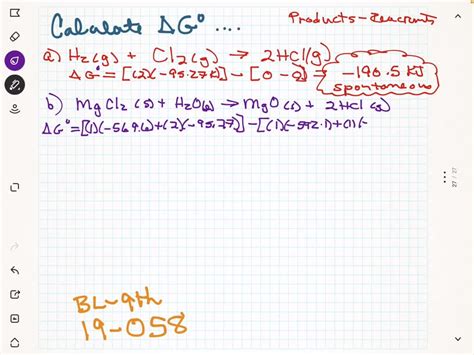 Calculate ΔG° ....
Products - Reactants
a) H₂(g) + Cl₂(g) → 2HCl(g)
ΔG° = [(2)(-95.27KJ)] - [0 - 0] = -190.5 KJ
spontaneous
b) MgCl₂(s) + H₂O(l) → MgO(s) + 2HCl(g)
ΔG° = [(1)(-569.6)+(2)(-95.27)] - [(1)(-592.1)+(1)(-
27 / 27
BL-9th
19-058